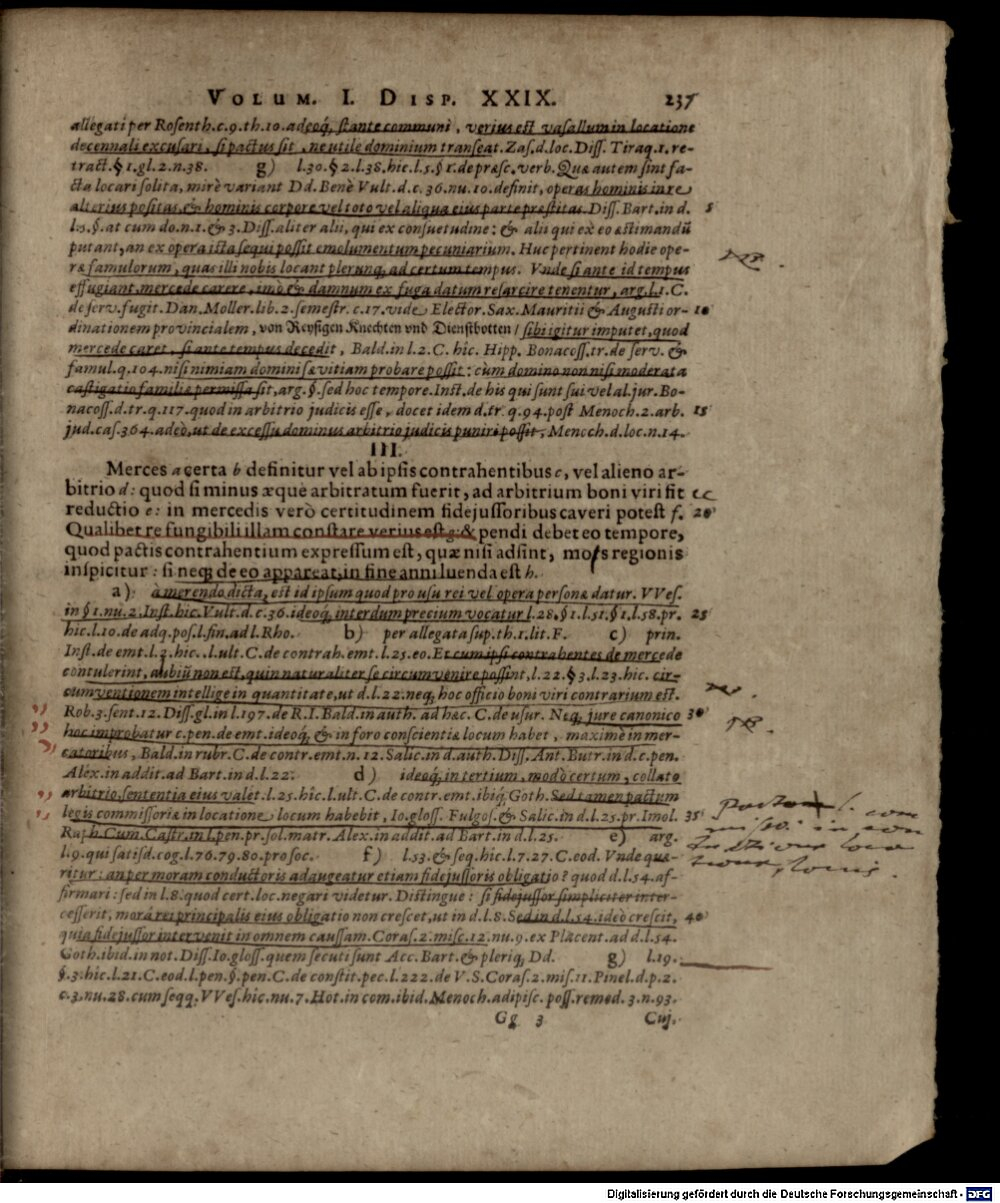 VOLUM. I. DISP. XXIX. 237
allegati per Rosenth. c. 9. th. 10. adeoq́, stante communi, verius est vasallum in locatione
decennali excusari, si pactus sit, ne utile dominium transeat. Zas. d. loc. Diss. Tiraq. 1. re-
tract. § 1. gl. 2. n. 38. g) l. 30. § 2. l. 38. hic. l. 5. § 1. de præsc. verb. Quæ autem sint fa-
cta locari solita, mirè variant Dd. Benè Vult. d. c. 36. nu. 10. definit, operas hominis in re
alterius positas, & hominis corpore vel toto vel aliqua eius parte præstitas. Diss. Bart. in d. 5
l. 5. §. at cum do. n. 1. & 3. Diss. aliter alii, qui ex consuetudine: & alii qui ex eo æstimandū
putant, an ex opera ista sequi possit emolumentum pecuniarium. Huc pertinent hodie ope-
ræ famulorum, quas illi nobis locant plerunq́, ad certum tempus. Vnde si ante id tempus
effugiant, mercede carere, imò & damnum ex fuga datum resarcire tenentur, arg. l. 1. C.
de serv. fugit. Dan. Moller. lib. 2. semestr. c. 17. vide Elector. Sax. Mauritii & Augusti or- 10
dinationem provincialem, von Reysigen Knechten vnd Dienstbotten / sibi igitur imputet, quod
mercede caret, si ante tempus decedit, Bald. in l. 2. C. hîc. Hipp. Bonacoss. tr. de serv. &
famul. q. 104. nisi nimiam domini sævitiam probare possit: cùm domino non nisi moderata
castigatio familiæ permissa sit, arg. §. sed hoc tempore. Inst. de his qui sunt sui vel al. jur. Bo-
nacoss. d. tr. q. 117. quod in arbitrio judicis esse, docet idem d. tr. q. 94. post Menoch. 2. arb. 15
jud. cas. 364. adeò, ut de excessu dominus arbitrio judicis puniri possit, Menoch. d. loc. n. 14.
III.
Merces a certa b definitur vel ab ipsis contrahentibus c, vel alieno ar-
bitrio d: quod si minus æque arbitratum fuerit, ad arbitrium boni viri fit
reductio e: in mercedis verò certitudinem fidejussoribus caveri potest f. 20
Qualibet re fungibili illam constare verius est g: & pendi debet eo tempore,
quod pactis contrahentium expressum est, quæ nisi adsint, mos regionis
inspicitur: si neq́ de eo appareat, in fine anni luenda est h.
a) à merendo dicta, est id ipsum quod pro usu rei vel opera personæ datur. VVes.
in § 1. nu. 2. Inst. hic. Vult. d. c. 36. ideoq́, interdum precium vocatur l. 28. § 1. l. 51. § 1. l. 58. pr. 25
hic. l. 10. de adq. pos. l. fin. ad l. Rho. b) per allegata sup. th. 1. lit. F. c) prin.
Inst. de emt. l. 2. hic. l. ult. C. de contrah. emt. l. 25. eo. Et cum ipsi contrahentes de mercede
contulerint, dubiū non est, quin naturaliter se circumvenire possint, l. 22. § 3. l. 23. hic. cir-
cumventionem intellige in quantitate, ut d. l. 22. neq́, hoc officio boni viri contrarium est.
Rob. 3. sent. 12. Diss. gl. in l. 197. de R. I. Bald. in auth. ad hæc. C. de usur. Neq́, jure canonico 30
hoc improbatur c. pen. de emt. ideoq́, & in foro conscientiæ locum habet, maximè in mer-
catoribus, Bald. in rubr. C. de contr. emt. n. 12. Salic. in d. auth. Diss. Ant. Butr. in d. c. pen.
Alex. in addit. ad Bart. in d. l. 22. d) ideoq́, in tertium, modò certum, collato
arbitrio, sententia eius valet. l. 25. hîc. l. ult. C. de contr. emt. ibiq́. Goth. Sed tamen pactum
legis commissoriæ in locatione locum habebit, Io. gloss. Fulgos. & Salic. in d. l. 25. pr. Imol. 35
Raph. Cum. Castr. in l. pen. pr. sol. matr. Alex. in addit. ad Bart. in d. l. 25. e) arg.
l. 9. qui satisd. cog. l. 76. 79. 80. pro soc. f) l. 53. & seq. hîc. l. 7. 27. C. eod. Vnde quæ-
ritur: an per moram conductoris adaugeatur etiam fidejussoris obligatio? quod d. l. 54. af-
firmari: sed in l. 8. quod cert. loc. negari videtur. Distingue: si fidejussor simpliciter inter-
cesserit, morâ rei principalis eius obligatio non crescet, ut in d. l. 8. Sed in d. l. 54. ideò crescit, 40
quia fidejussor intervenit in omnem caussam. Coras. 2. misc. 12. nu. 9. ex Placent. ad d. l. 54.
Goth. ibid. in not. Diss. Io. gloss. quem secuti sunt Acc. Bart. & pleriq́, Dd. g) l. 19.
§. 3. hîc. l. 21. C. eod. l. pen. § pen. C. de constit. pec. l. 222. de V. S. Coras. 2. mis. 11. Pinel. d. p. 2.
c. 3. nu. 28. cum seqq. VVes. hîc. nu. 7. Hot. in com. ibid. Menoch. adipisc. poss. remed. 3. n. 93.
Gg 3 Cuj.
Digitalisierung gefördert durch die Deutsche Forschungsgemeinschaft - DFG